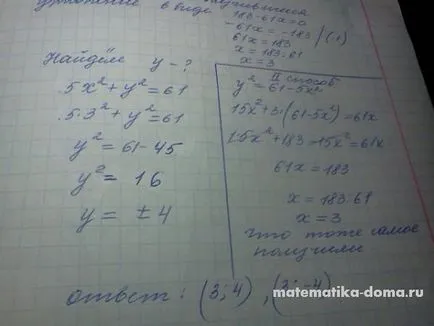 уравнение в виде
183-61x=0
-61x = -183 /(-1)
61x = 183
x = 183:61
x = 3
Найдём y - ?
5x²+y²=61
5·3²+y²=61
y² = 61-45
y² = 16
y = ±4
II способ
y² = 61-5x²
15x²+3(61-5x²)=61x
15x²+183-15x²=61x
61x = 183
x = 183:61
x = 3
что тоже самое
получили
ответ: (3;4), (3;-4)
matematika-doma.ru